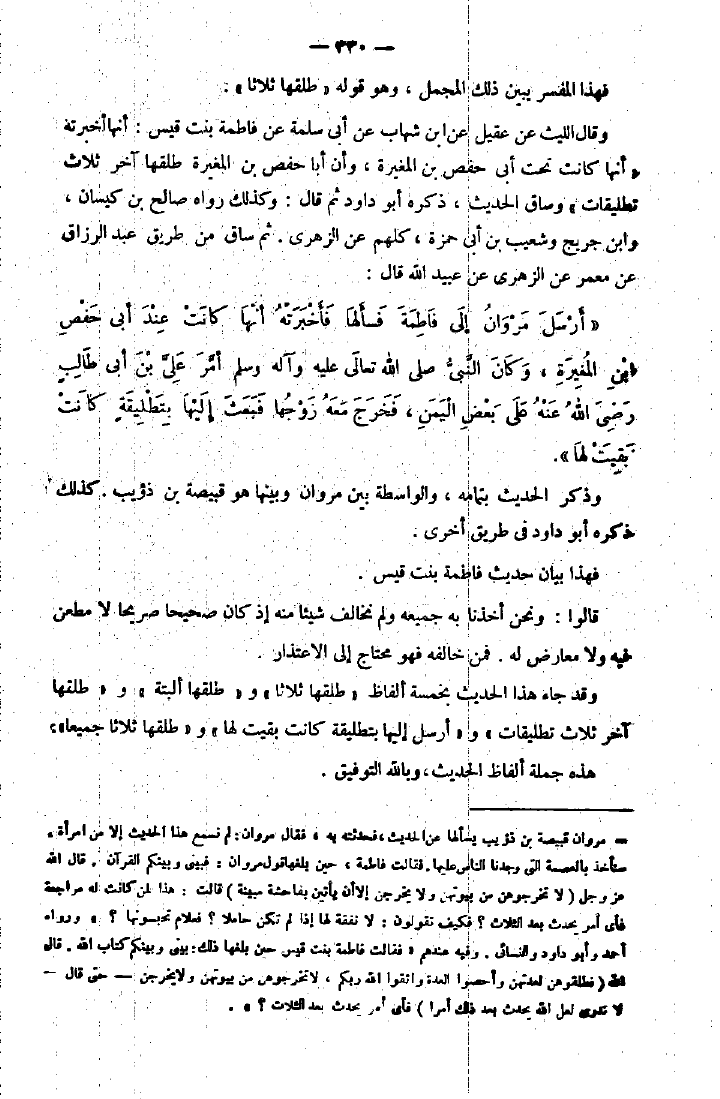 — ٣٣٠ —
فهذا المفسر يبين ذلك المجمل ، وهو قوله « طلقها ثلاثا » :
وقال الليث عن عقيل عن ابن شهاب عن أبى سلمة عن فاطمة بنت قيس : أنها أخبرته
« أنها كانت تحت أبى حفص بن المغيرة ، وأن أبا حفص بن المغيرة طلقها آخر ثلاث
تطليقات » وساق الحديث ، ذكره أبو داود ثم قال : وكذلك رواه صالح بن كيسان ،
وابن جريج وشعيب بن أبى حمزة ، كلهم عن الزهرى . ثم ساق من طريق عبد الرزاق
عن معمر عن الزهرى عن عبيد الله قال :
« أَرْسَلَ مَرْوَانُ إِلَى فَاطِمَةَ فَسَأَلَهَا فَأَخْبَرَتْهُ أَنَّهَا كَانَتْ عِنْدَ أبى حَفْصِ
ابْنِ المُغِيرَةِ ، وَكَانَ النَّبِيُّ صلى الله تعالَى عليه وآله وسلم أَمَّرَ عَلِيَّ بْنَ أبى طَالِبٍ
رَضِيَ اللهُ عَنْهُ عَلَى بَعْضِ الْيَمَنِ ، فَخَرَجَ مَعَهُ زَوْجُهَا فَبَعَثَ إِلَيْهَا بِتَطْلِيقَةٍ كَانَتْ
بَقِيَتْ لَهَا ».
وذكر الحديث بتمامه ، والواسطة بين مروان وبينها هو قبيصة بن ذؤيب . كذلك
ذكره أبو داود فى طريق أخرى .
فهذا بيان حديث فاطمة بنت قيس .
قالوا : ونحن أخذنا به جميعه ولم نخالف شيئا منه إذ كان صحيحا صريحا لا مطعن
فيه ولا معارض له . فمن خالفه فهو محتاج إلى الاعتذار .
وقد جاء هذا الحديث بخمسة ألفاظ « طلقها ثلاثا » و « طلقها ألبتة » و « طلقها
آخر ثلاث تطليقات » و « أرسل إليها بتطليقة كانت بقيت لها » و « طلقها ثلاثا جميعا »
هذه جملة ألفاظ الحديث ، وبالله التوفيق .
— مروان قبيصة بن ذؤيب يسألها عن الحديث ، فحدثته به ، فقال مروان : لم نسمع هذا الحديث إلا من امرأة .
سنأخذ بالعصمة التى وجدنا الناس عليها . فقالت فاطمة ، حين بلغها قول مروان : فبينى وبينكم القرآن . قال الله
عز وجل ( لا تخرجوهن من بيوتهن ولا يخرجن إلا أن يأتين بفاحشة مبينة ) قالت : هذا لمن كانت له مراجعة
فأى أمر يحدث بعد الثلاث ؟ فكيف تقولون : لا نفقة لها إذا لم تكن حاملا ؟ فعلام تحبسونها ؟ » ورواه
أحمد وأبو داود والنسائى . وفيه عندهم « فقالت فاطمة بنت قيس حين بلغها ذلك : بينى وبينكم كتاب الله . قال
الله ( فطلقوهن لعدتهن وأحصوا العدة واتقوا الله ربكم ، لا تخرجوهن من بيوتهن ولا يخرجن — حتى قال —
لا تدرى لعل الله يحدث بعد ذلك أمرا ) فأى أمر يحدث بعد الثلاث ؟ » .